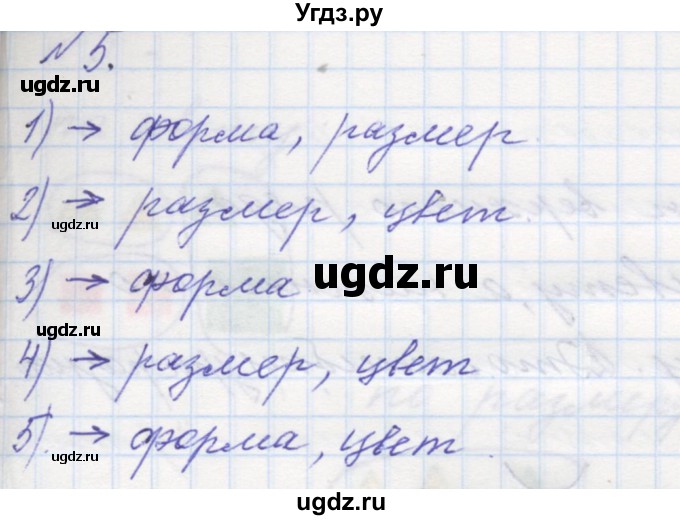 Угдз.ру
№ 5.
ugdz.ru
1) → форма, размер.
2) → размер, цвет.
ugdz.ru
ugdz.ru
3) → форма
ugdz.ru
4) → размер, цвет
5) → форма, цвет.
ugdz.ru
ugdz.ru